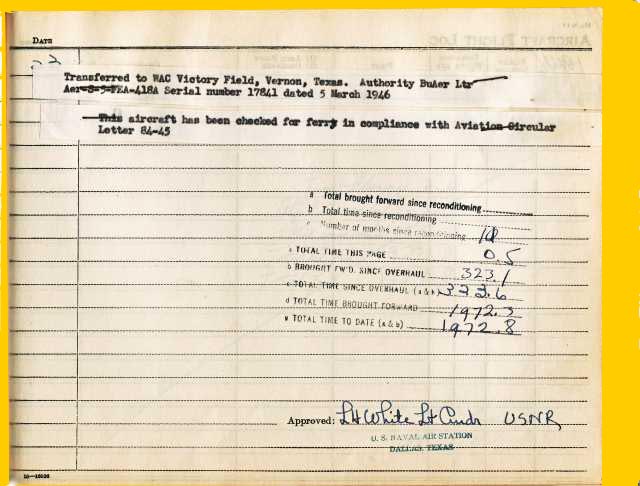 DATE
Transferred to WAC Victory Field, Vernon, Texas. Authority BuAer Ltr
Aer-S-5-FEA-418A Serial number 17841 dated 5 March 1946
This aircraft has been checked for ferry in compliance with Aviation Circular
Letter 84-45
a Total brought forward since reconditioning
b Total time since reconditioning
c Number of months since reconditioning 10
a TOTAL TIME THIS PAGE 0.5
b BROUGHT FW'D. SINCE OVERHAUL 323.1
c TOTAL TIME SINCE OVERHAUL (a & b) 323.6
d TOTAL TIME BROUGHT FORWARD 1972.3
e TOTAL TIME TO DATE (a & b) 1972.8
Approved: LH White Lt Cmdr USNR
U. S. NAVAL AIR STATION
DALLAS, TEXAS